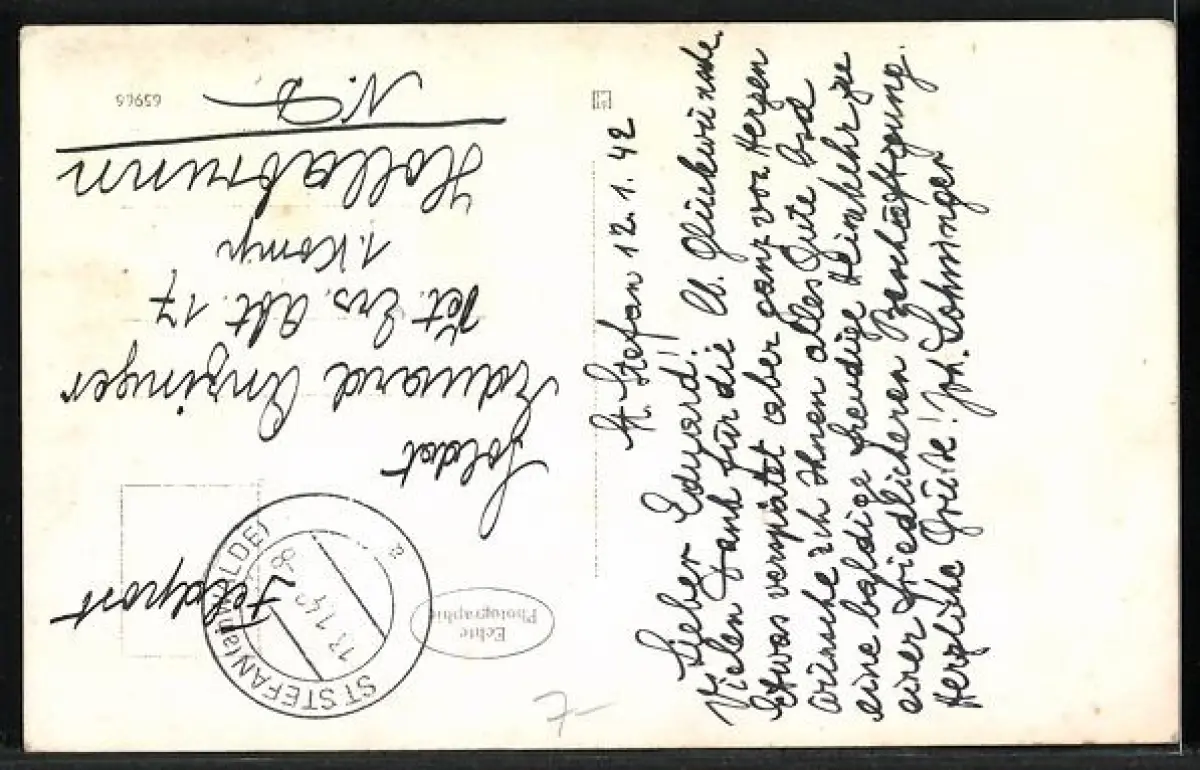 St. Stefan 12.1.42
Lieber Eduard!
Vielen Dank für die lb. Glückwünsche.
Etwas verspätet aber ganz von Herzen
wünsche ich Ihnen alles Gute und
eine baldige freudige Heimkehr zu
einer friedlicheren Beschäftigung.
Herzliche Grüße! Joh. Lohninger
Feldpost
Soldat
Eduard Anzinger
Ers. Abt. 17
1. Komp
Hollabrunn
N.D.
ST STEFAN
13.1.42
a
Echte
Photographie
65966
7-